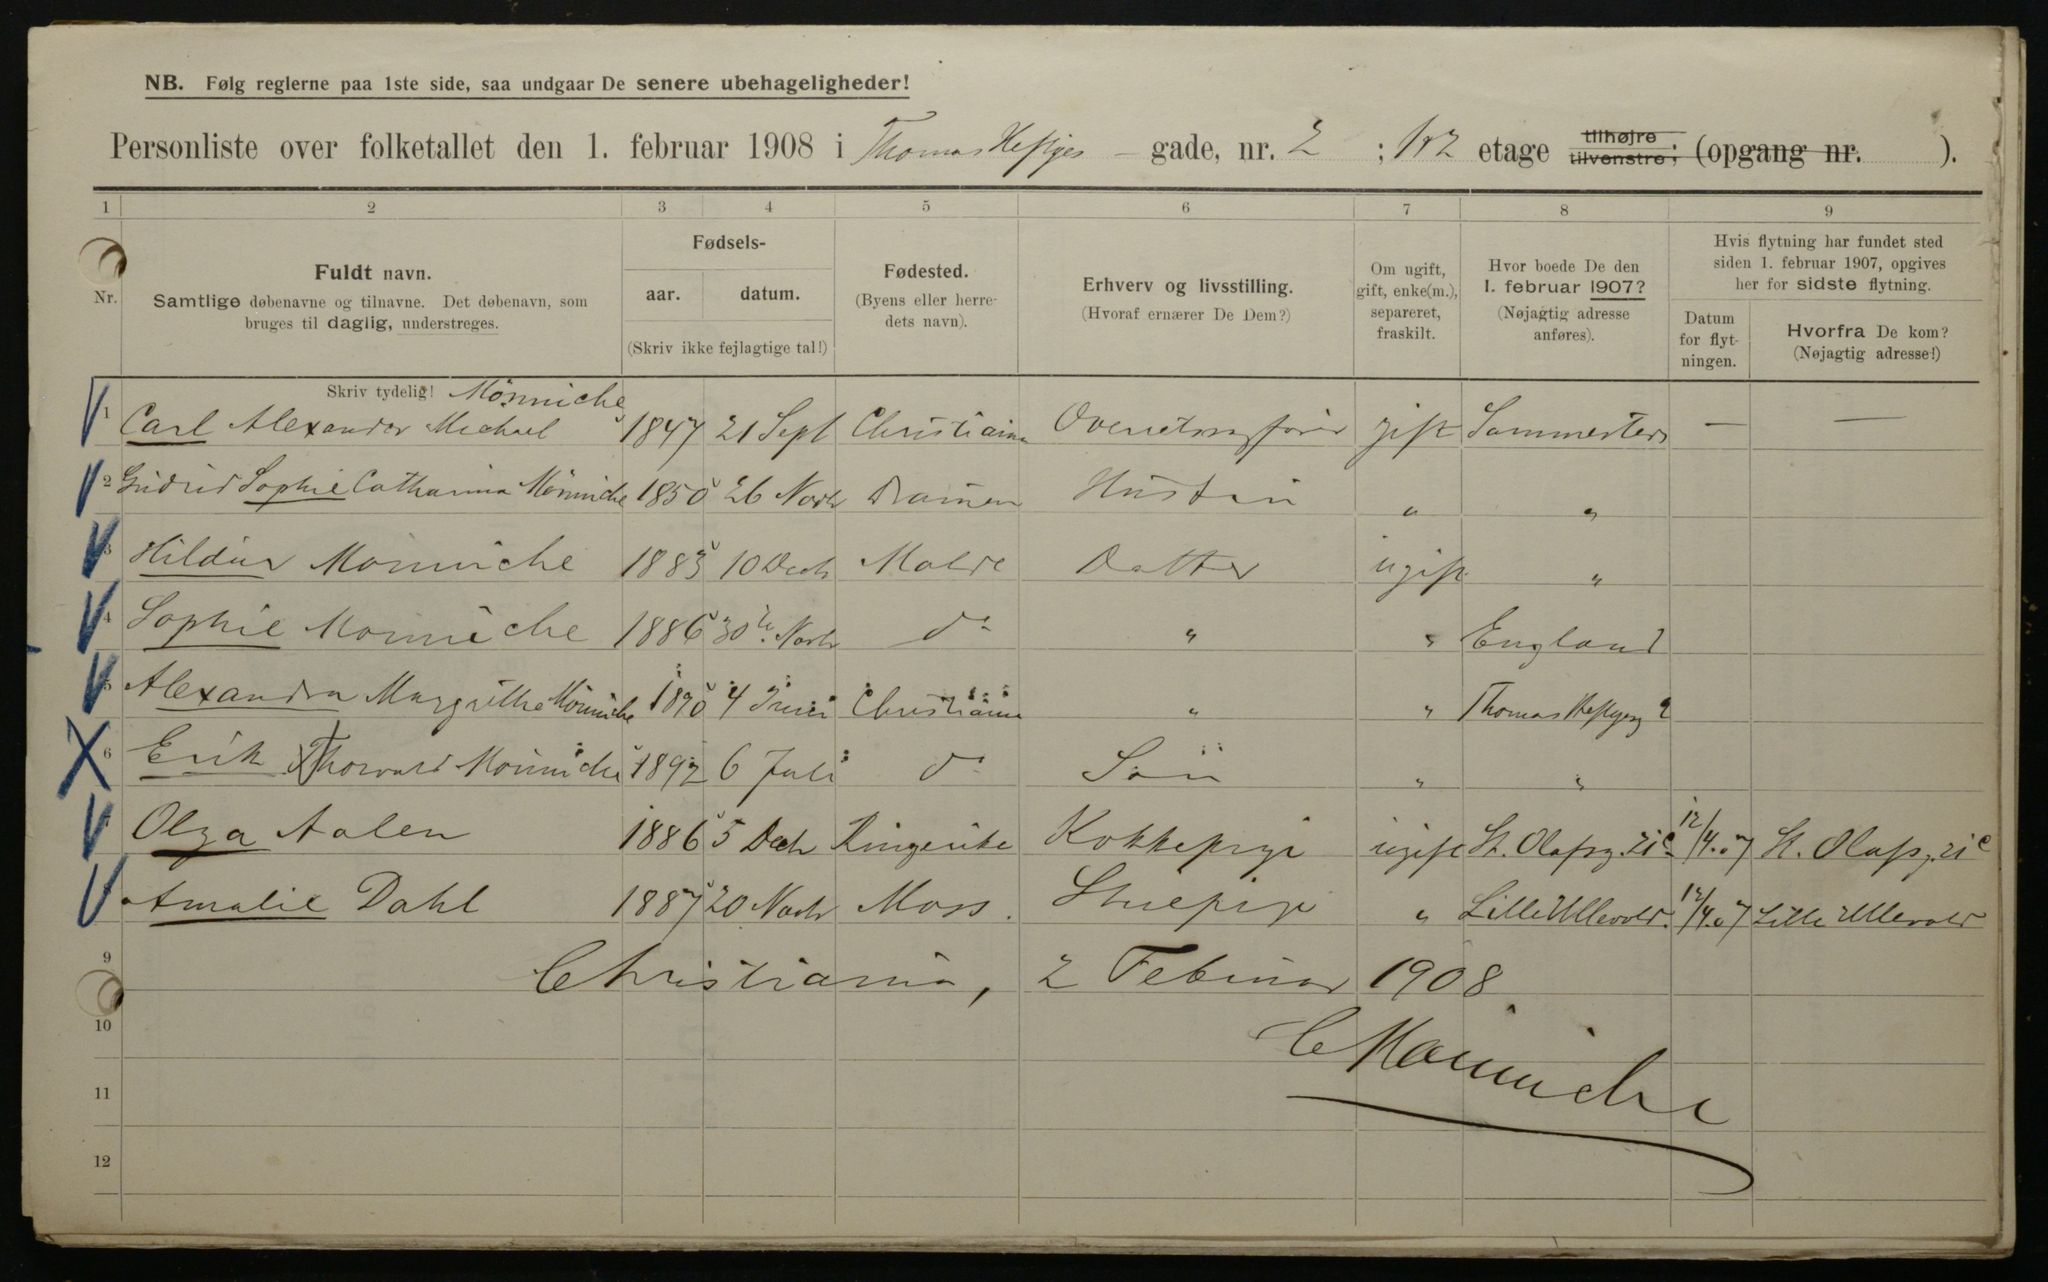 NB. Følg reglerne paa 1ste side, saa undgaar De senere ubehageligheder!
Personliste over folketallet den 1. februar 1908 i Thomas Heftyes gade, nr. 2 ; 1 & 2 etage tilhøjre tilvenstre; (opgang nr. ).
1 2 3 4 5 6 7 8 9
Nr.
Fuldt navn.
Samtlige døbenavne og tilnavne. Det døbenavn, som
bruges til daglig, understreges.
Fødsels-
aar. datum.
(Skriv ikke fejlagtige tal!)
Fødested.
(Byens eller herre-
dets navn).
Erhverv og livsstilling.
(Hvoraf ernærer De Dem?)
Om ugift,
gift, enke(m.),
separeret,
fraskilt.
Hvor boede De den
1. februar 1907?
(Nøjagtig adresse
anføres).
Hvis flytning har fundet sted
siden 1. februar 1907, opgives
her for sidste flytning.
Datum
for flyt-
ningen.
Hvorfra De kom?
(Nøjagtig adresse!)
Skriv tydelig! Mönniche
1 Carl Alexander Michael 1847 21 Sept Christiania gift — —
2 Gudrid Sophie Catharina Mönniche 1850 26 Novbr Dramen Hustru " "
3 Hildur Mönniche 1883 10 Decbr Molde Datter ugift "
4 Sophie Mönniche 1886 30te Novbr do " " England
5 Alexandra Margrethe Mönniche 1890 4 Juni Christiania " " Thomas Heftyesg 2
6 Erik Thorvald Mönniche 1892 6 Juli do Sön " "
7 Olga Aalen 1886 5 Decbr Ringerike Kokkepige ugift St. Olafsg. 21c 12/4.07 St. Olafsg. 21c
8 Amalie Dahl 1887 20 Novbr Moss. Stuepige " Lille Ullevold. 12/4.07 Lille Ullevold
9 Christiania, 2 Februar 1908
10
C Mönniche
11
12